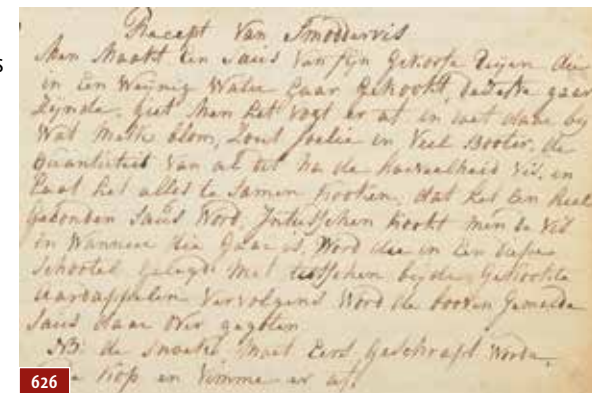 Recept Van Smoddervis
Men Maakt een Saus Van fijn gekorfe Eijen die
in Een Weynig Water gaar gekookt, dezelfde gaar
Zijnde, giet Men het Vogt er af, en doet daar by
Wat Melk blom, Zout foelie en Veel Booter, de
quantiteit Van al dit na de hoeveelheid Vis, en
Laat het alles te Samen kooken, dat het Een heel
gebonden Saus Word, Intusschen kookt men de Vis
en Wanneer die gaar is Word die in Een diepe
Schootel gelegd met tusschen beyde gekookte
aardappelen Vervolgens Word de booven gemelde
Saus daar over gegooten
NB de snoeks moet Eerst geschrapt Worde,
kop en Vimme er af.
626